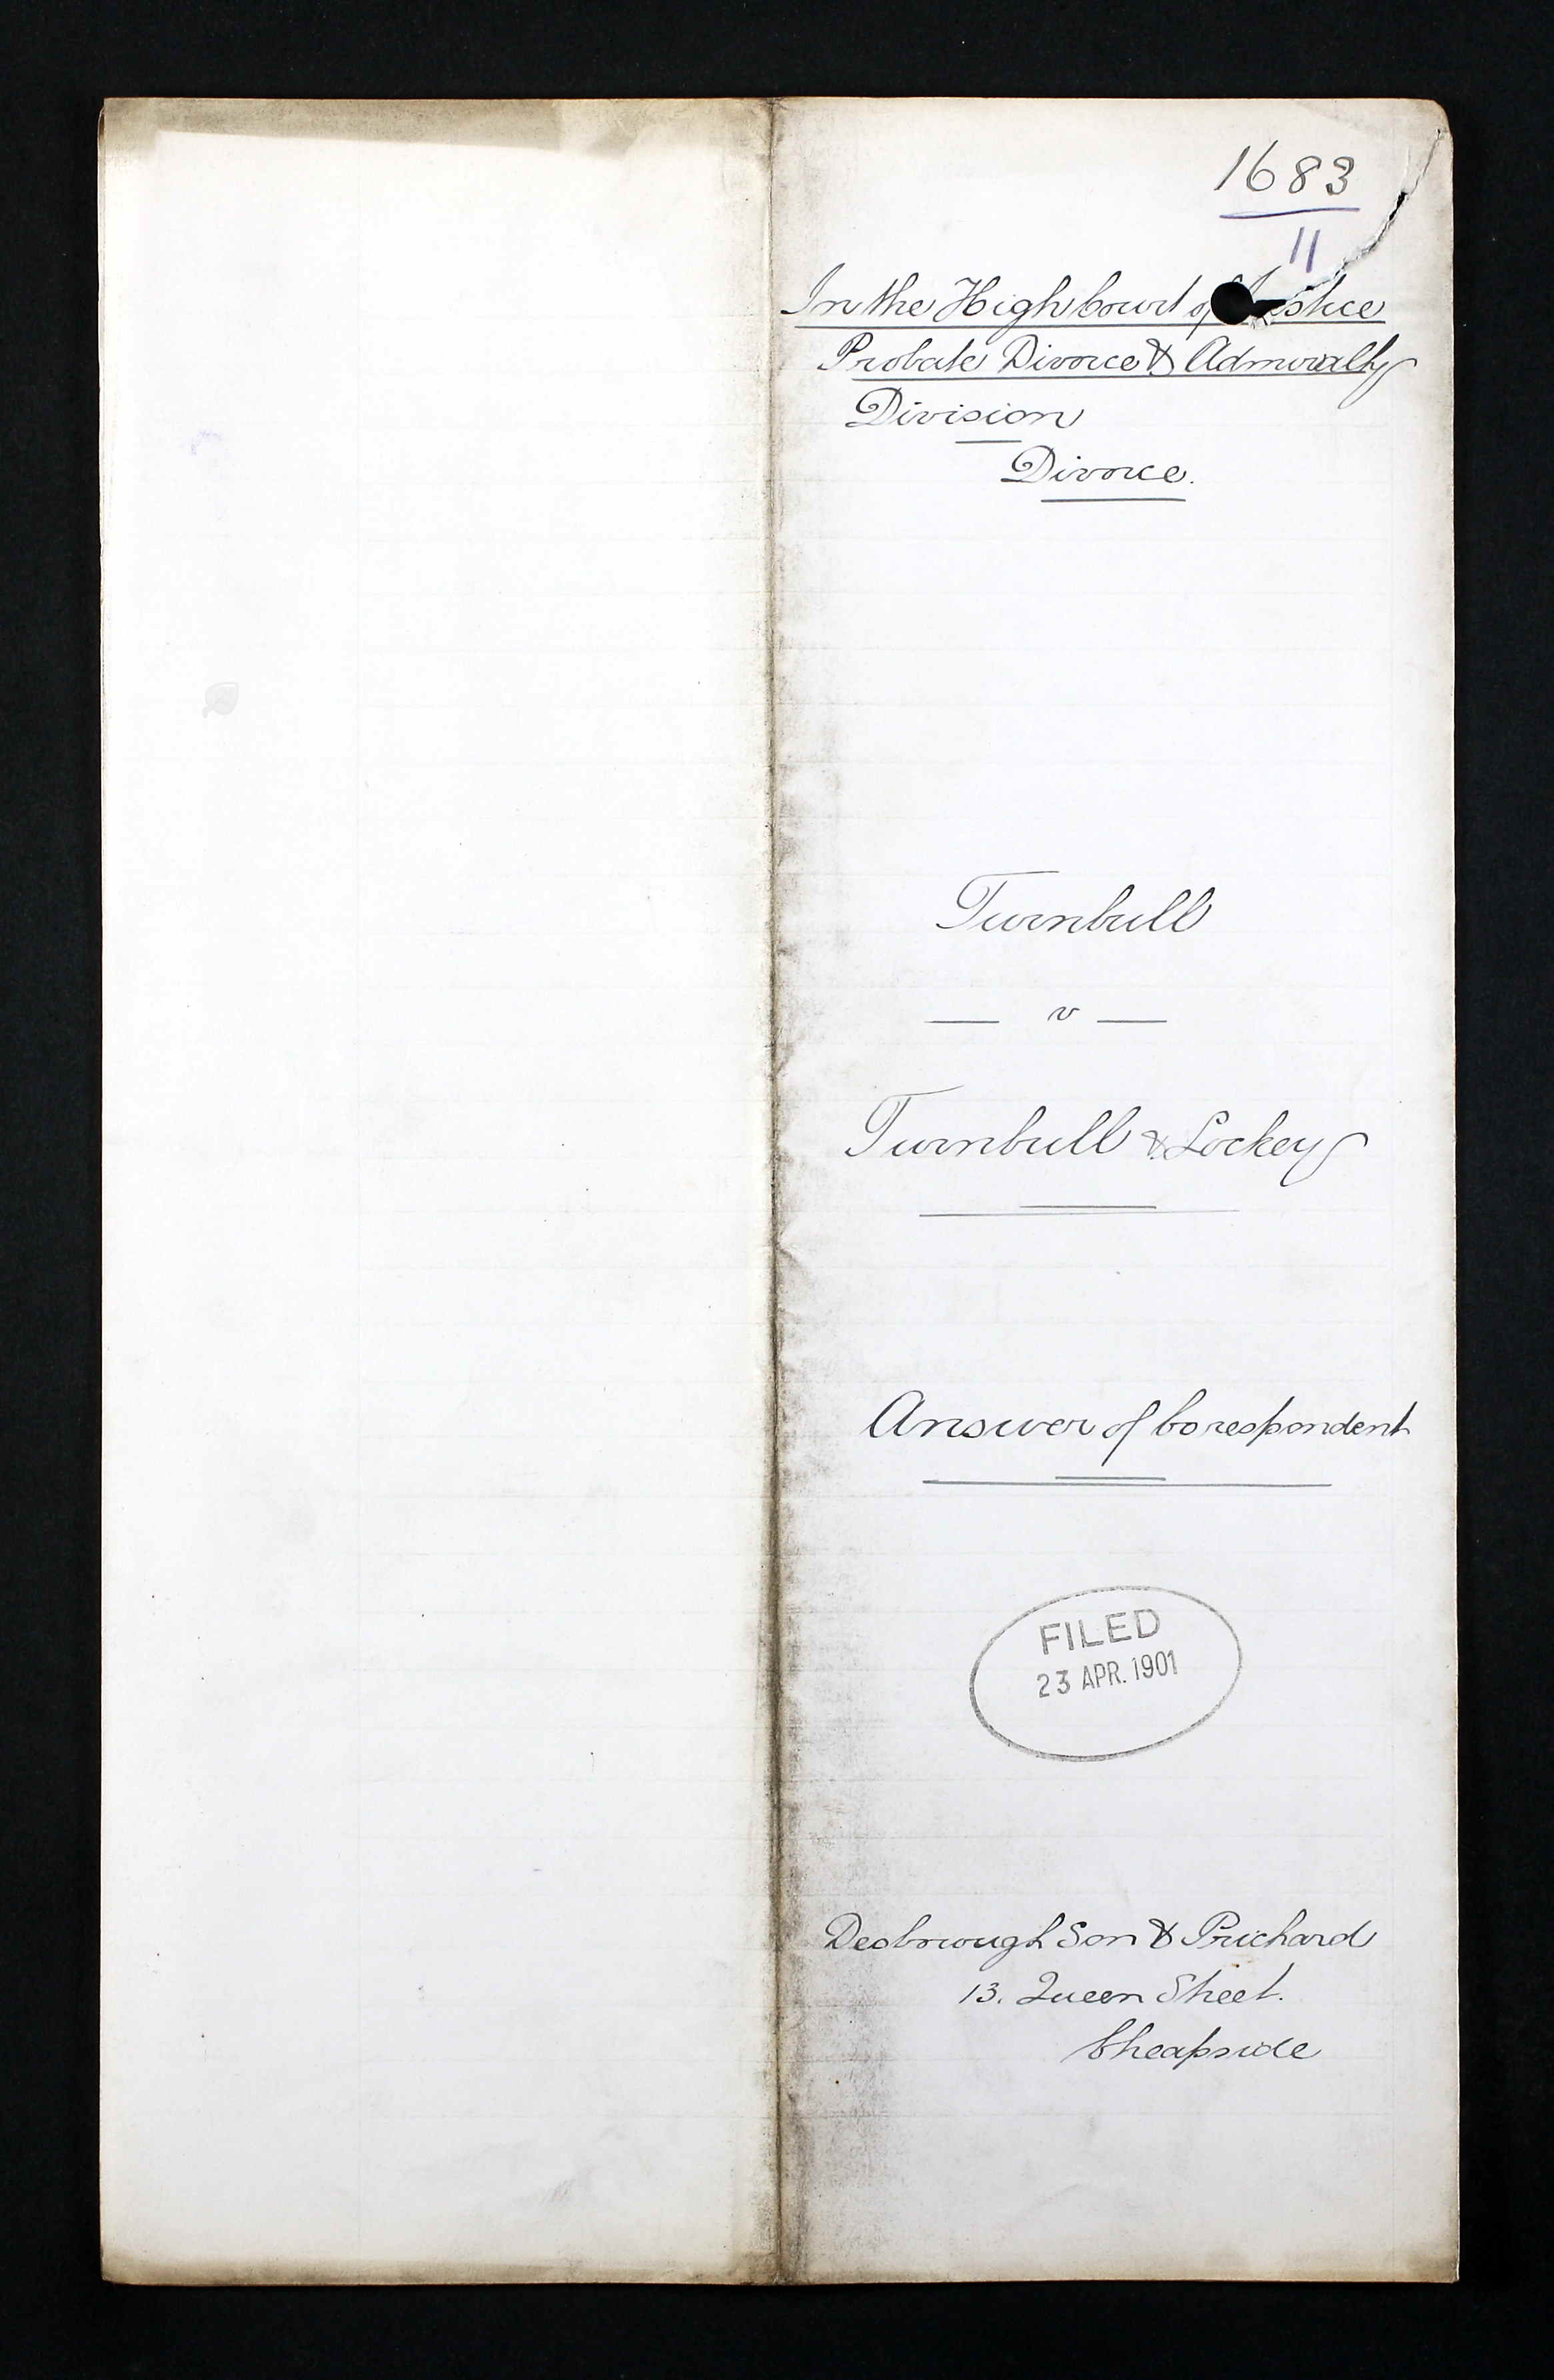 1683
11
In the High Court of Justice
Probate Divorce & Admiralty
Division
Divorce.
Turnbull
— v —
Turnbull & Lockey
Answer of Corespondent
FILED
23 APR. 1901
Desbrough Son & Prichard
13. Queen Street.
Cheapside